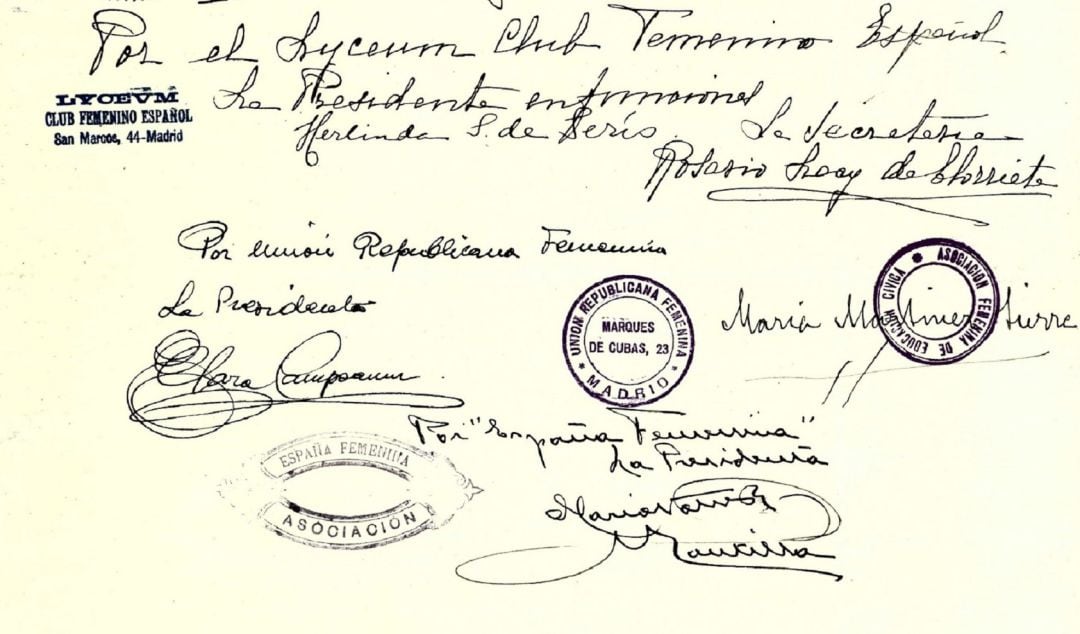 Por el Lyceum Club Femenino Español
LYCEVM
CLUB FEMENINO ESPAÑOL
San Marcos, 44-Madrid
La Presidente en funciones
Herlinda S. de Serís.
La Secretaria
Rosario Lacy de Elorrieta
Por Unión Republicana Femenina
La Presidenta
Clara Campoamor
UNION REPUBLICANA FEMENINA
MARQUES
DE CUBAS, 23
* MADRID *
ASOCIACION FEMENINA DE EDUCACION CIVICA
María Martínez Sierra
Por "España Femenina"
La Presidenta
ESPAÑA FEMENINA
ASOCIACIÓN